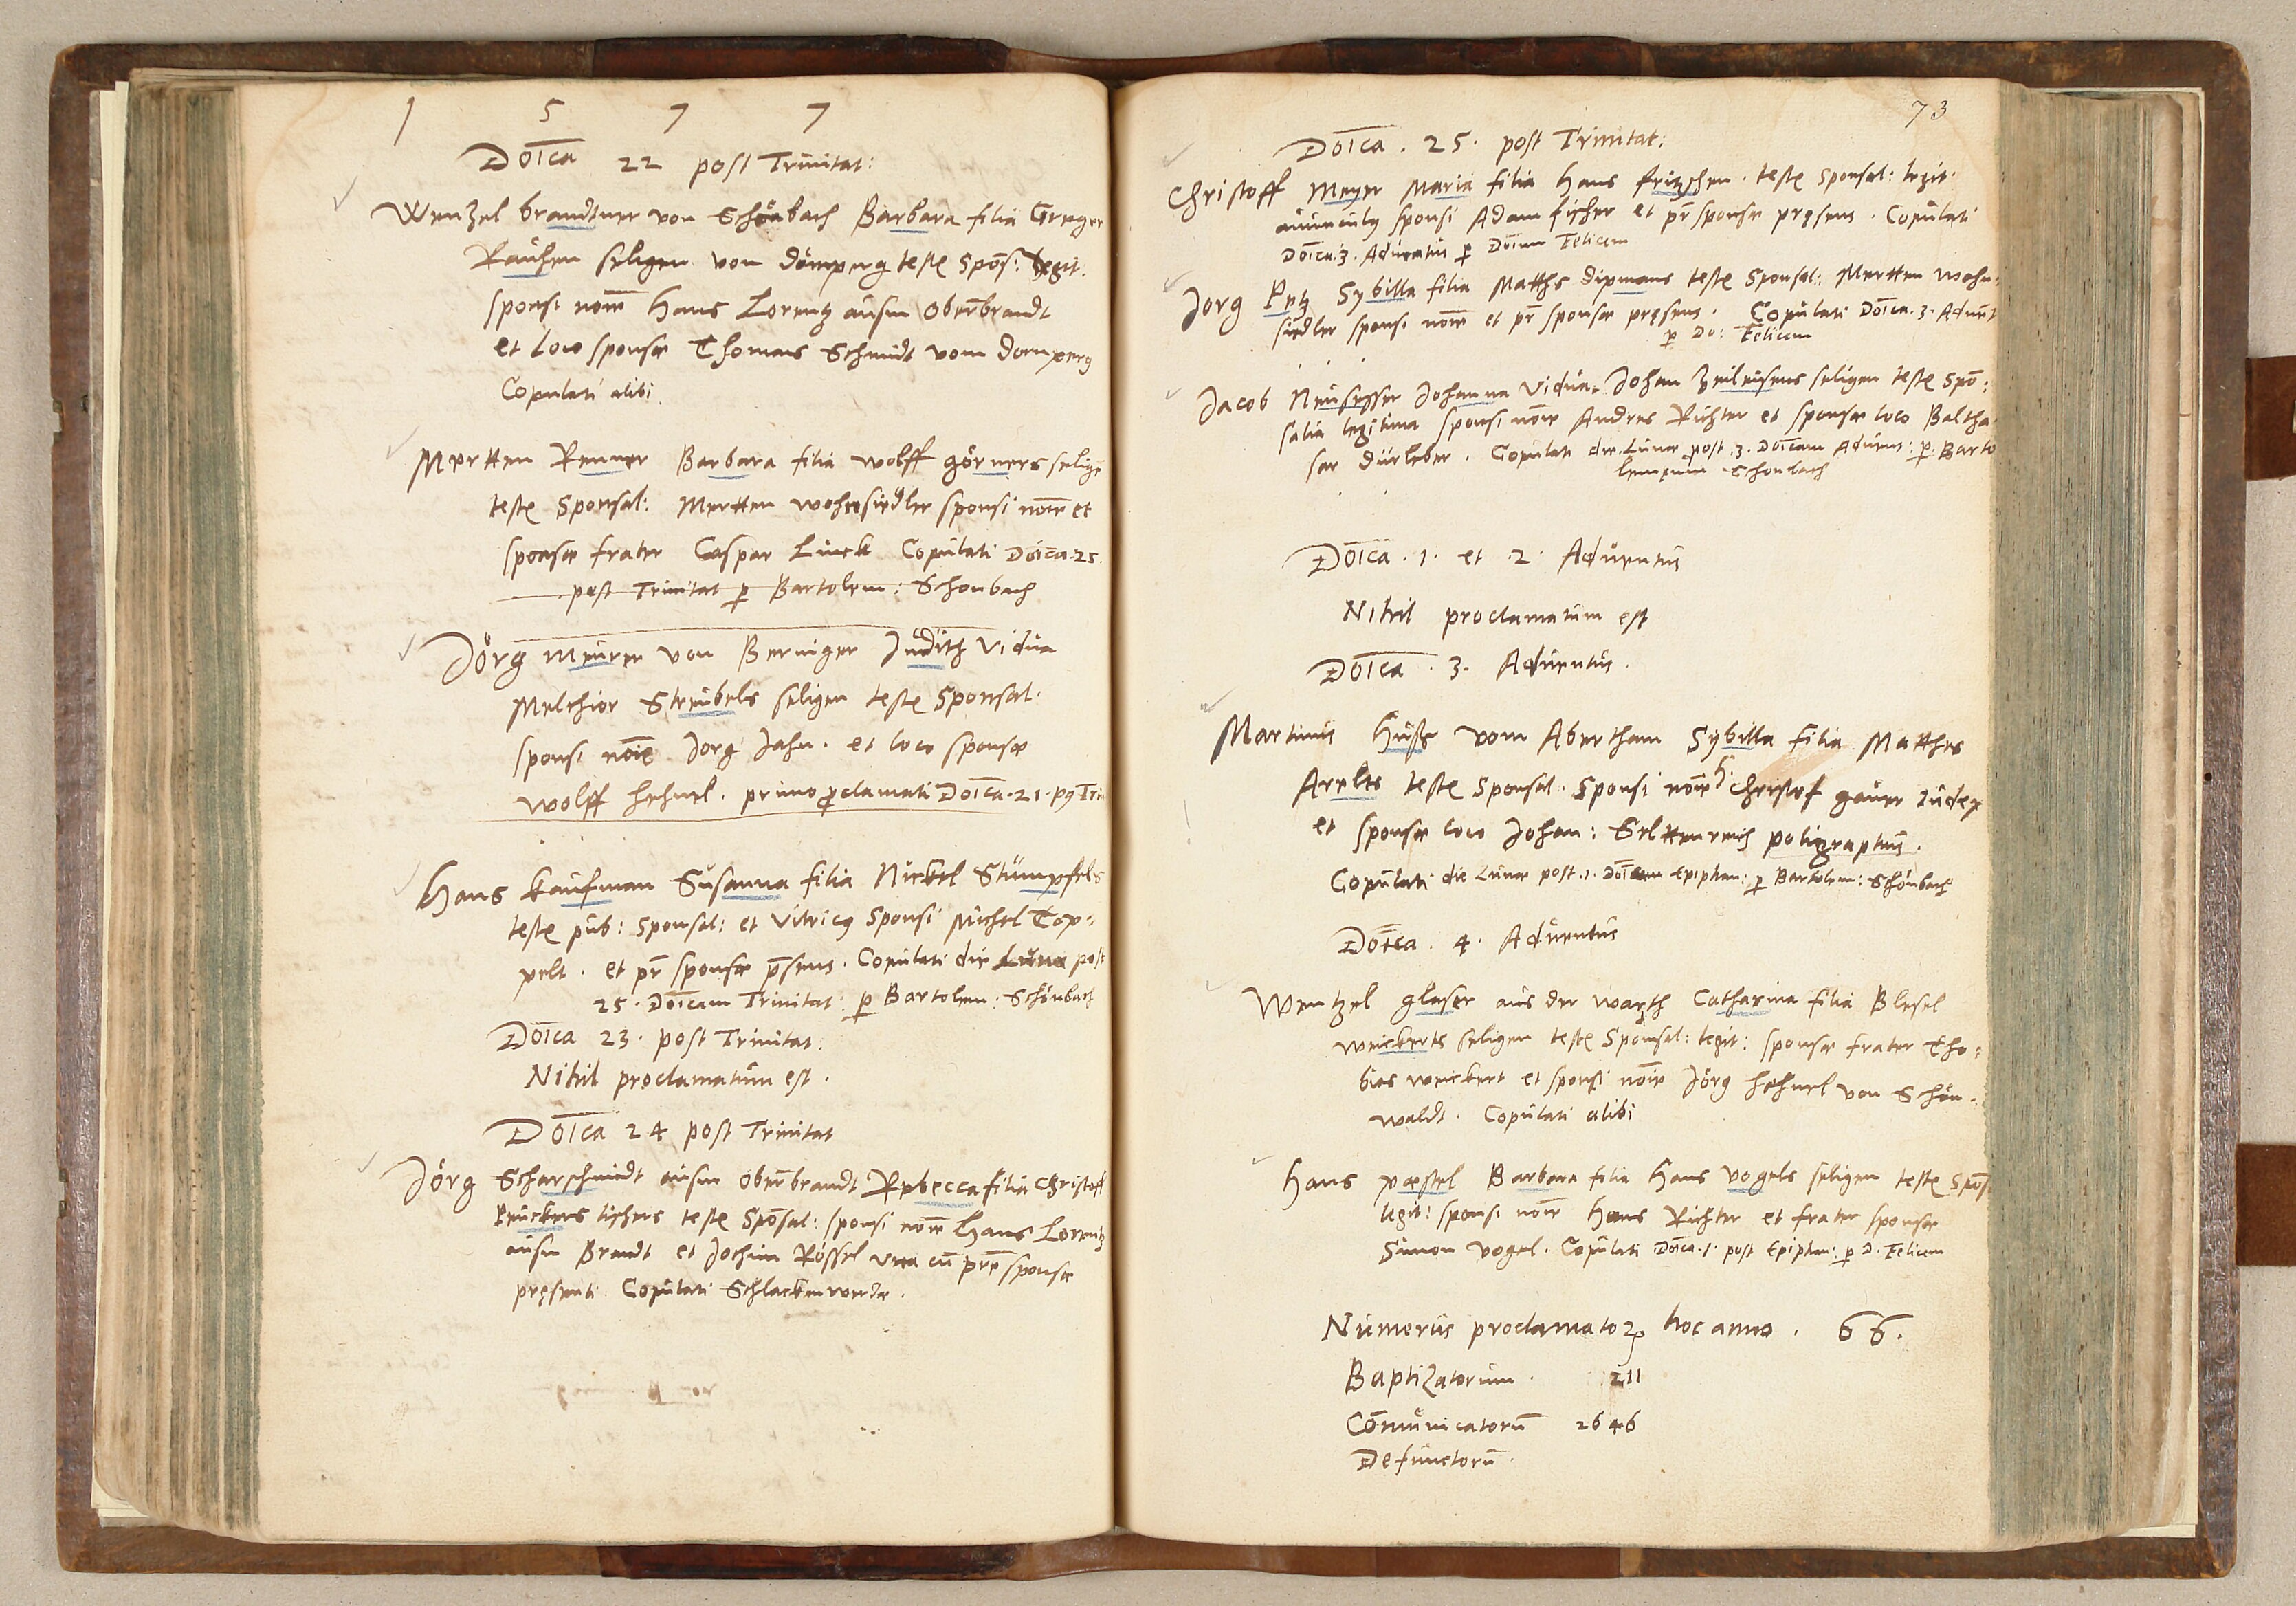 1 5 7 7
Doīca 22 post Trinitat:
Wentzel brandtner von Schönbach Barbara filia Greger
seligen von dömperg teste Spōs: legit.
sponsi noīe Hans Lorentz ausm Obernbrandt
et loco sponsæ Thomas Schmidt vom dornperg
Copulati alibi.
Mertten Renner Barbara filia wolff görners selige
teste Sponsal: Mertten wohnsiedler sponsi noīe et
sponsæ frater Caspar Linck Copulati Doīca. 25.
post Trinitat p Bartolem: Schonbach
Jörg Meurer von Beringer Judith Vidua
Melchior Streubels seligen teste Sponsal.
sponsi noīe Jorg Jahn. et loco sponsæ
wolff hehnel. primo proclamati Doīca. 21. pq Tri
Hans Kaufman Susanna filia Nickel Stümpfels
teste pub: Sponsal: et Vitricq Sponsi Michel Top-
pelt. et pr sponsæ psens. Copulati die Lunæ post
25. Doīcam Trinitat: p Bartolem: Schönbach
Doīca 23. post Trinitat:
Nihil proclamatum est.
Doīca 24 post Trinitat
Jörg Scharschmidt ausm Obernbrandt Rebecca filia Christoff
Peuckers tischers teste Spōsal: sponsi noīe Hans Lorentz
ausm Brandt et Jochim Rössel una cū prē sponsæ
pręsenti Copulati Schlackenwerdæ.
73
Doīca. 25. post Trinitat:
Christoff Meyer Maria filia Hans fritzschen. teste Sponsal: legit.
avunculq sponsi Adam fischer et pr sponsæ pręsens. Copulati
Doīca. 3. Adventus p Doīnum Felicem
Jorg Petz Sybilla filia Matths dipmans teste Sponsal: Mertten wohn-
siedler sponsi noīe et pr sponsæ pręsens. Copulati Doīca. 3. Advent
p Do: Felicem
Jacob Neusesser Johanna Vidua Johan seligen teste Spō:
salia legitima sponsi noīe Andres Richter et sponsæ loco Baltha
sar dürleber. Copulati die Lunæ post. 3. Doīcam Advent: p Barto
lemęum Schonbach
Doīca. 1. et 2. Adventus
Nihil proclamatum est
Doīca. 3. Adventus.
Martinus Huss vom Abertham Sybilla filia Matthes
Arelts teste Sponsal. Sponsi noīe H. Christof gaüer Iudex
et sponsæ loco Johan: Seltenreich poligraphus.
Copulati die Lunæ post. 1. Doīcam Epiphan: p Bartolem: Schönbach
Doīca. 4. Adventus
Wentzel glaser aus der warth Catharina filia Blesel
weickerts seligen teste Sponsal: legit: sponsæ frater Tho-
bias weickert et sponsi noīe Jörg hehnel von Schön-
waldt. Copulati alibi
Hans pæstel Barbara filia Hans Vogels seligen teste Spōs
legit: sponsi noīe Hans Richter et frater sponsæ
Simon Vogel. Copulati Doīca. 1. post Epiphan: p D. Felicem
Numerus proclamatoꝝ hoc anno. 66.
Baptizatorum. 211
Cōmunicatorū 2646
Defunctorū.